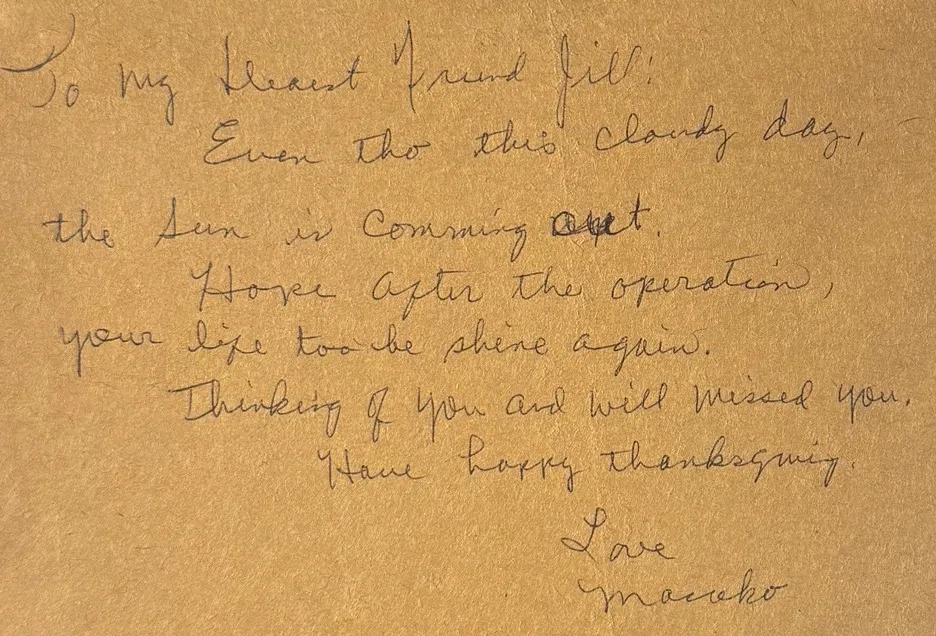 To My Dearest Friend Jill!
Even tho this cloudy day,
the Sun is Comming out.
Hope after the operation,
your life too be shine again.
Thinking of you and will missed you.
Have happy thanksgiving.
Love
Masako